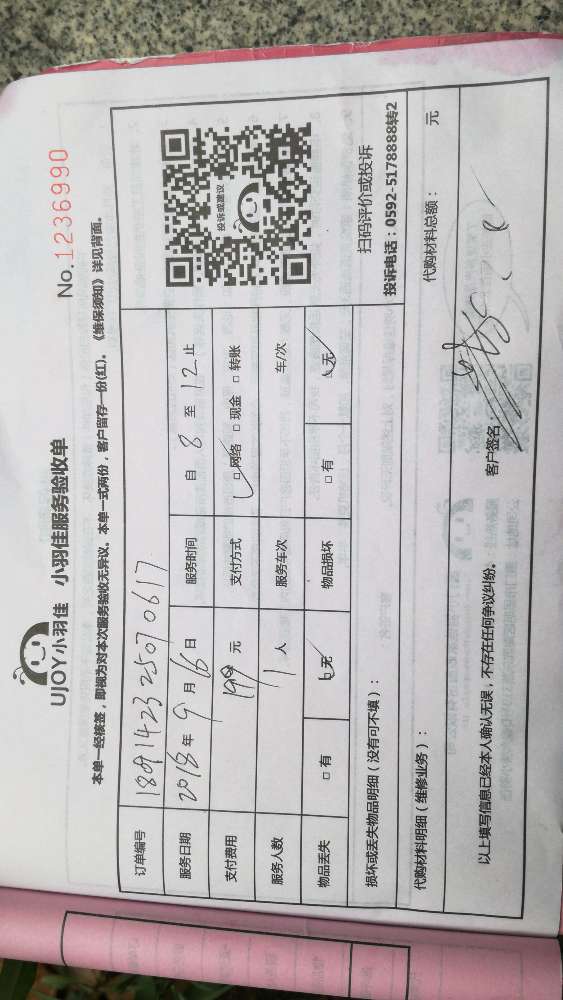 UJOY小羽佳 小羽佳服务验收单
No.1236990
本单一经核签，即视为对本次服务验收无异议。本单一式两份，客户留存一份(红)。《维保须知》详见背面。
订单编号 1809142325070617
服务日期 2018年9月16日 服务时间 自8至12止
支付费用 199元 支付方式 ☑网络 □现金 □转账
服务人数 1人 服务车次 车/次
物品丢失 □有 ☑无 物品损坏 □有 ☑无
投诉或建议
扫码评价或投诉
投诉电话：0592-5178888转2
损坏或丢失物品明细（没有可不填）：
代购材料明细（维修业务）： 代购材料总额： 元
以上填写信息已经本人确认无误，不存在任何争议纠纷。 客户签名：